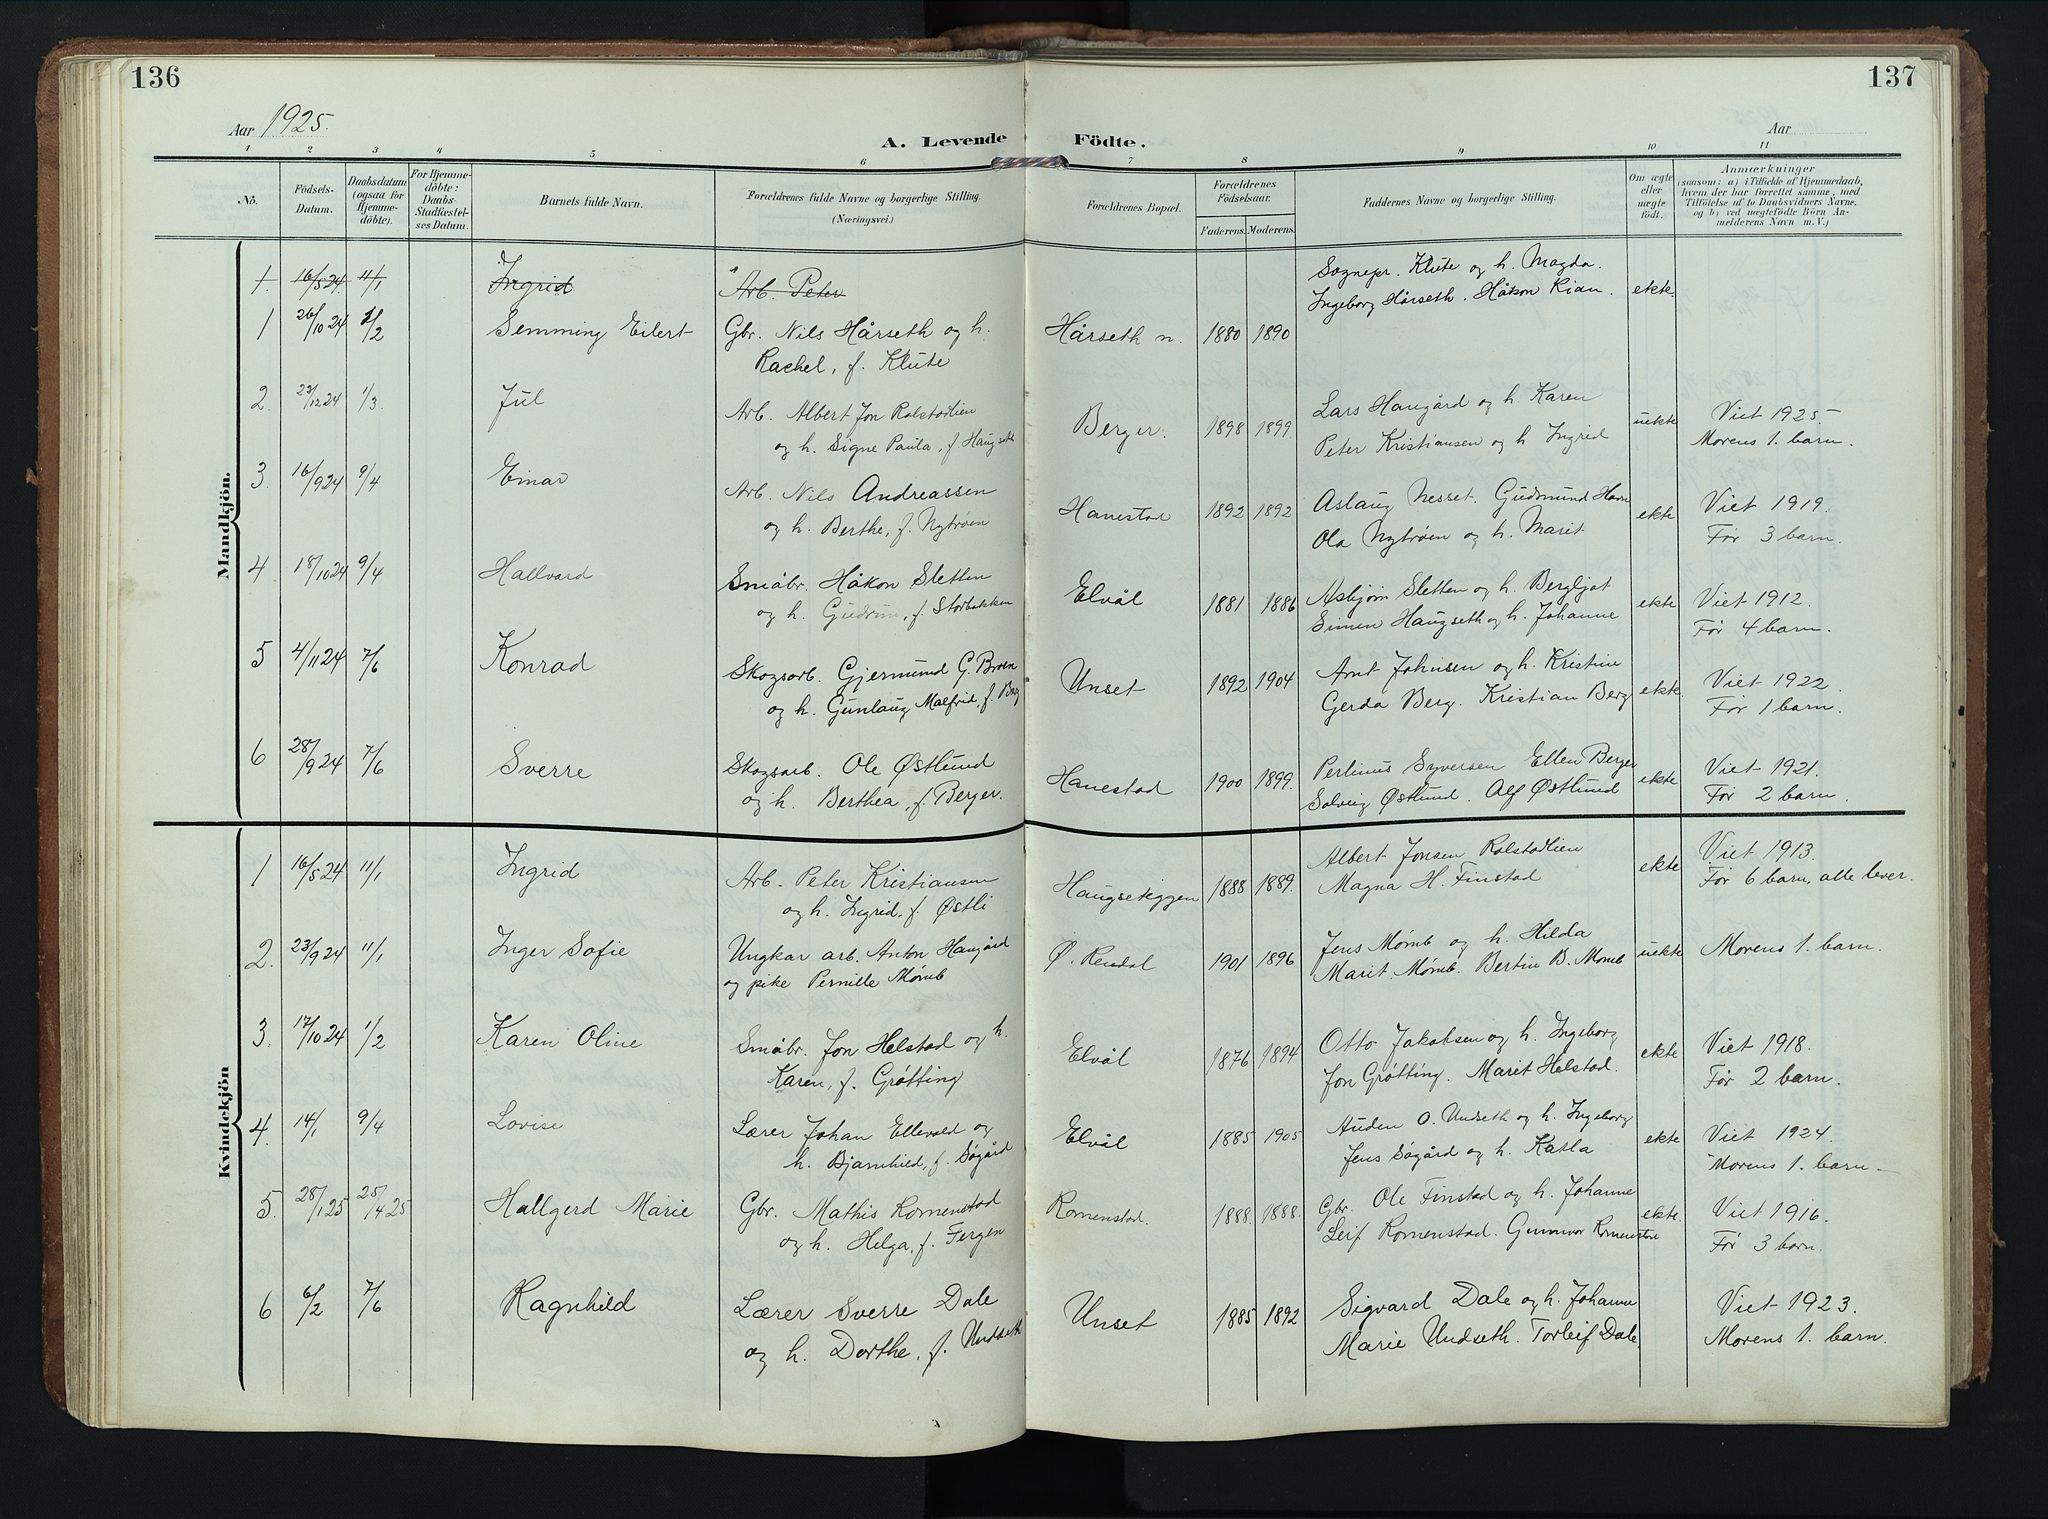 136
137
Aar 1925.
A. Levende Födte.
Aar
1 2 3 4 5 6 7 8 9 10 11
Nö.
Födsels-
Datum.
Daabsdatum
(ogsaa for
Hjemme-
döbte).
For Hjemme-
döbte:
Daabs-
Stadfæstel-
ses Datum.
Barnets fulde Navn.
Forældrenes fulde Navne og borgerlige Stilling.
(Næringsvei.)
Forældrenes Bopæl.
Forældrenes
Födselsaar.
Faderens. Moderens.
Faddernes Navne og borgerlige Stilling.
Om ægte
eller
uægte
födt.
Anmærkninger
(saasom: a) i Tilfælde af Hjemmedaab,
hvem der har forrettet samme, med
Tilföielse af to Daabsvidners Navne,
og b) ved uægtefödte Börn An-
melderens Navn m. V.)
Mandkjön.
1. 16/5 24 11/1 Ingrid Arb. Peter
1 26/10 24 1/2 Semming Eilert Gbr. Nils Hårseth og h.
Rachel, f. Klute
Hårseth n. 1880 1890
Sognepr. Klute og h. Magda.
Ingeborg Hårseth. Håkon Rian. ekte.
2. 23/12 24 1/3. Jul Arb. Albert Jon Rolstadlien
og h. Signe Paula, f. Haugseth
Berger. 1898 1899.
Lars Haugård og h. Karen
Peter Kristiansen og h Ingrid
uekte
Viet 1925
Morens 1. barn.
3. 16/9 24 9/4 Einar Arb. Nils Andreassen
og h. Berthe, f. Nytrøen
Hanestad 1892 1892
Aslaug Nesset. Gudmund
Ola Nytrøen og h. Marit
ekte
Viet 1919.
Før 3 barn.
4 18/10 24 9/4 Hallvard Småbr. Håkon Sletten
og h. Gudrun, f. Storbakken
Elvål 1881 1886
Asbjørn Sletten og h. Bergljot
Simen Haugseth og h. Johanne
ekte
Viet 1912.
Før 4 barn.
5 4/11 24 7/6 Konrad Skogsarb. Gjermund G. Broen
og h. Gunlaug Malfrid, f. Berg
Unset 1892 1904
Arnt Johnsen og h. Kristine
Gerda Berg. Kristian Berg
ekte.
Viet 1922.
Før 1 barn.
6 28/9 24 7/6 Sverre Skogsarb. Ole Østlund
og h. Berthea, f. Berger.
Hanestad 1900 1899.
Perlinus Syversen Ellen Berger
Solveig Østlund. Alf Østlund
ekte
Viet 1921.
Før 2 barn.
Kvindekjön
1 16/5 24 11/1 Ingrid Arb. Peter Kristiansen
og h. Ingrid, f. Østli
Haugseteggen 1888 1889.
Albert Jonsen Rolstadlien
Magna H. Finstad
ekte
Viet 1913.
Før 6 barn, alle lever.
2. 23/9 24 11/1 Inger Sofie Ungkar arb. Anton Haugård
og pike Pernille Mømb
Ø. Rendal 1901 1896
Jens Mømb og h. Hilda
Marit Mømb. Bertin B. Momb
uekte
Morens 1. barn.
3. 17/10 24 1/2 Karen Oline Småbr. Jon Helstad og h.
Karen, f. Grøtting
Elvål 1876 1894
Otto Jakobsen og h. Ingeborg
Jon Grøtting. Marit Helstad.
ekte
Viet 1918.
Før 2 barn.
4. 14/1 9/4 Lovise Lærer Johan Ellevold og
h. Bjarnhild, f. Søgård
Elvål 1885 1905
Auden O. Undseth og h. Ingeborg
Jens Søgård og h. Katla
ekte
Viet 1924.
Morens 1. barn
5. 28/1 25 25/4 25 Hallgerd Marie Gbr. Mathis Romenstad
og h. Helga, f. Fergen
Romenstad. 1888. 1888.
Gbr. Ole Finstad og h. Johanne
Leif Romenstad. Gunnvor Romenstad
ekte.
Viet 1916.
Før 3 barn.
6 6/2 7/6 Ragnhild Lærer Sverre Dale
og h. Dorthe, f. Undseth
Unset 1885 1892
Sigvard Dale og h. Johanne
Marie Undseth. Torleif Dale
Viet 1923.
Morens 1. barn.